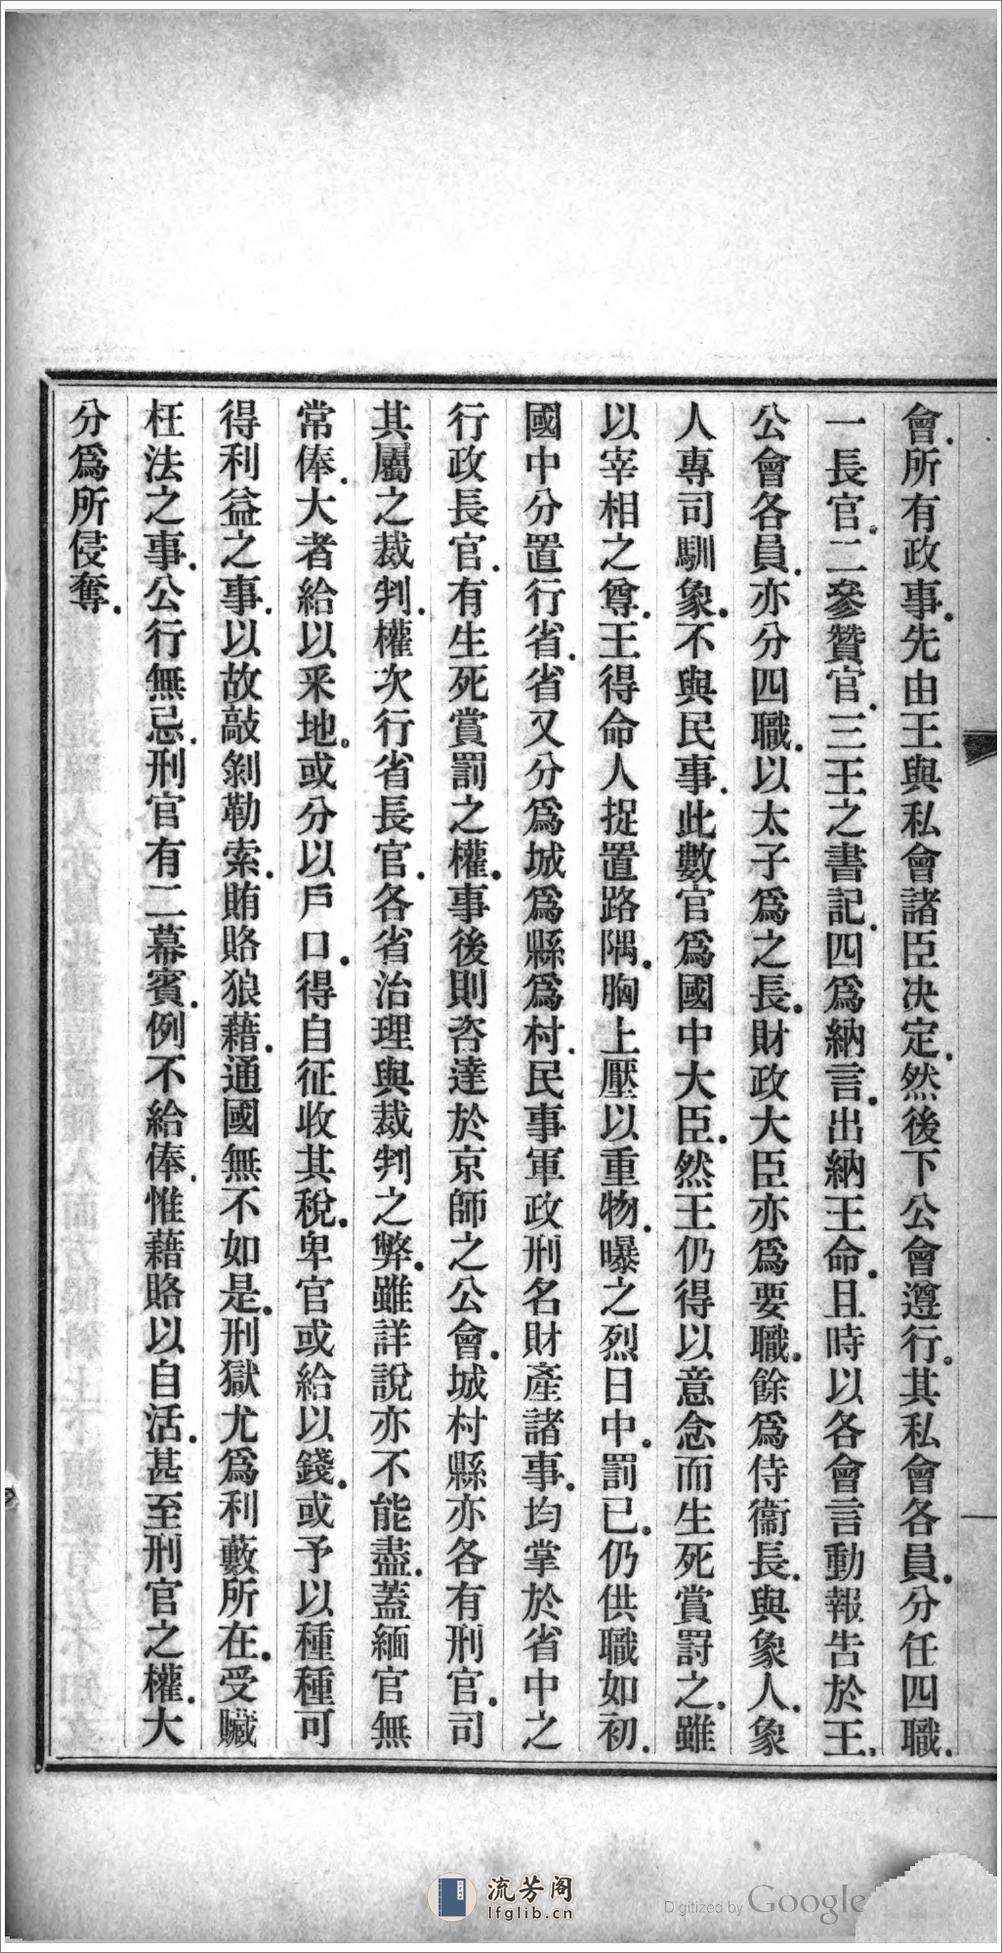 會、所有政事。先由王與私會諸臣決定、然後下公會遵行。其私會各員。分任四職、
一長官。二參贊官、三王之書記、四爲納言。出納王命。且時以各會言動報告於王、
公會各員、亦分四職、以太子爲之長。財政大臣亦爲要職。餘爲侍衞長、與象人、象
人專司馴象。不與民事、此數官爲國中大臣。然王仍得以意念而生死賞罰之、雖
以宰相之尊、王得命人捉置路隅。胸上壓以重物、曝之烈日中。罰已。仍供職如初、
國中分置行省、省又分爲城爲縣爲村、民事軍政刑名財產諸事。均掌於省中之
行政長官、有生死賞罰之權。事後則咨達於京師之公會。城村縣亦各有刑官。司
其屬之裁判、權次行省長官、各省治理與裁判之弊。雖詳說亦不能盡、蓋緬官無
常俸、大者給以釆地。或分以戶口。得自征收其稅。卑官或給以錢。或予以種種可
得利益之事、以故敲剝勒索、賄賂狼藉、通國無不如是。刑獄尤爲利藪所在。受贓
枉法之事、公行無忌、刑官有二幕賓、例不給俸、惟藉賂以自活、甚至刑官之權、大
分爲所侵奪。
流芳阁
lfglib.cn
Digitized by Google